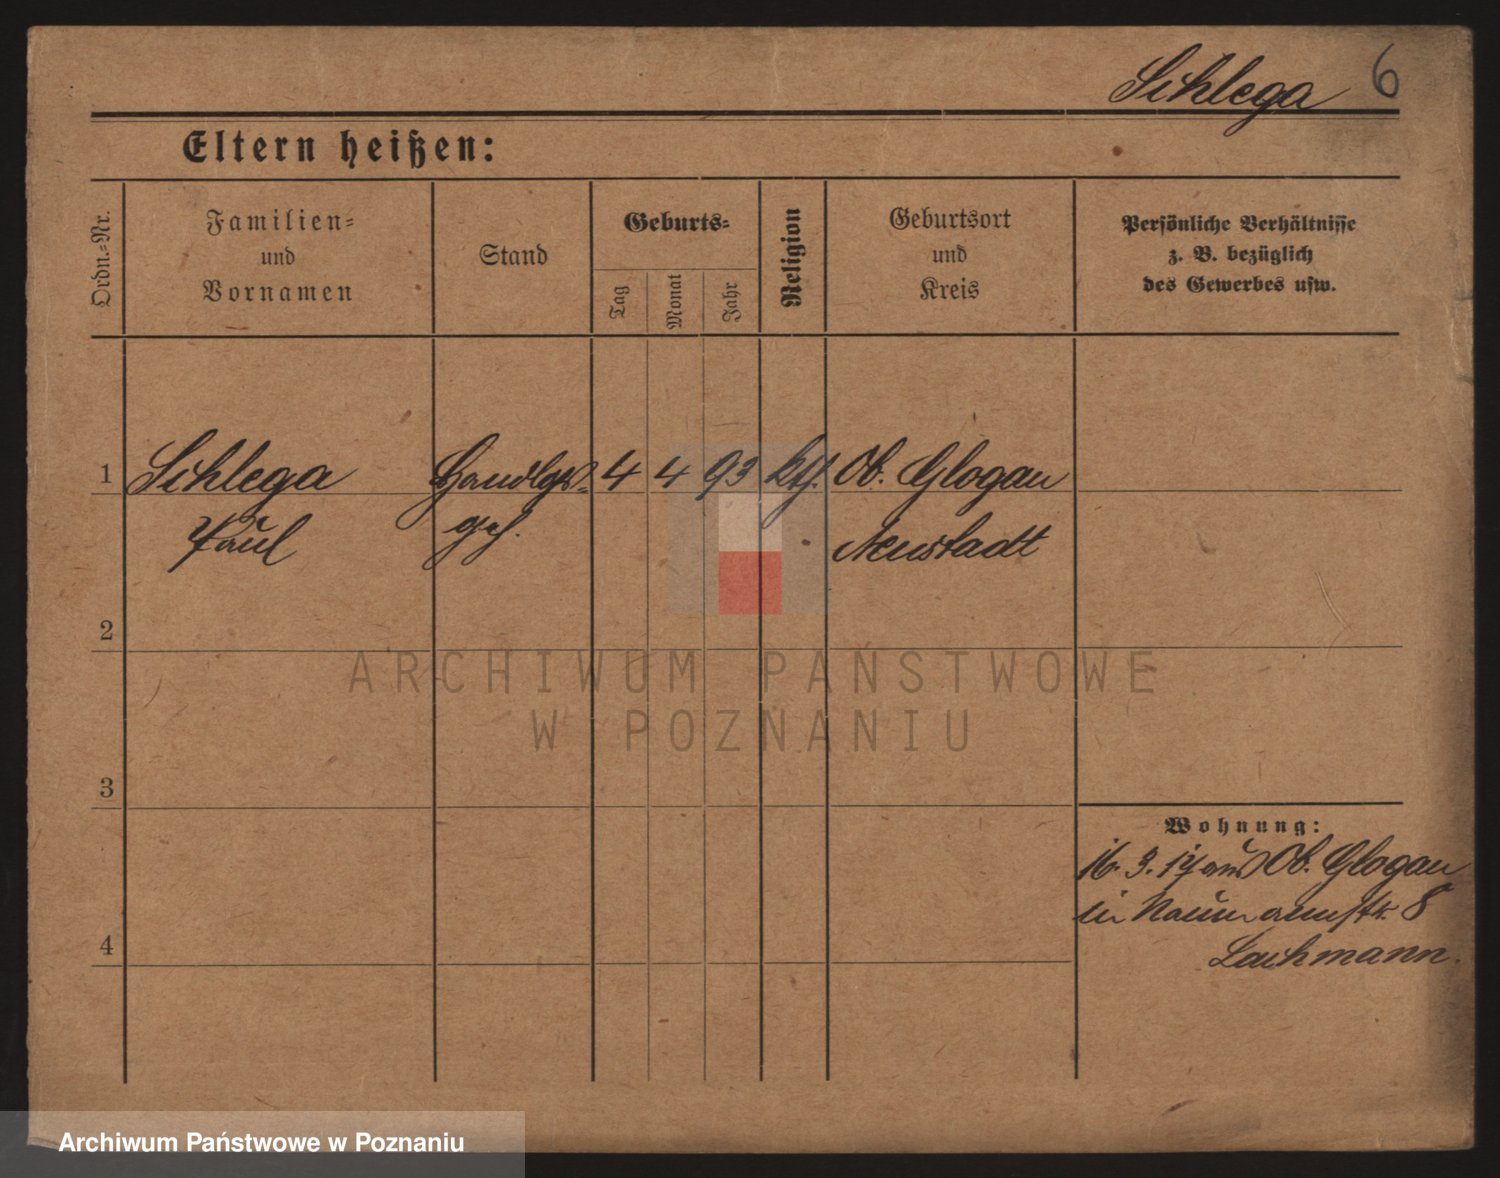 Schlega 6
Eltern heißen:
Ordn.-Nr.
Familien-
und
Vornamen
Stand
Geburts-
Tag
Monat
Jahr
Religion
Geburtsort
und
Kreis
Persönliche Verhältnisse
z. B. bezüglich
des Gewerbes usw.
1 Schlega Handlgs- 4 4 93 kth. Ob. Glogau
Paul geh. Neustadt
2
3
4
Wohnung:
16. 3. 17 aus Ob. Glogau
in Naumannstr. 8
Lachmann.
ARCHIWUM PAŃSTWOWE
W POZNANIU
Archiwum Państwowe w Poznaniu